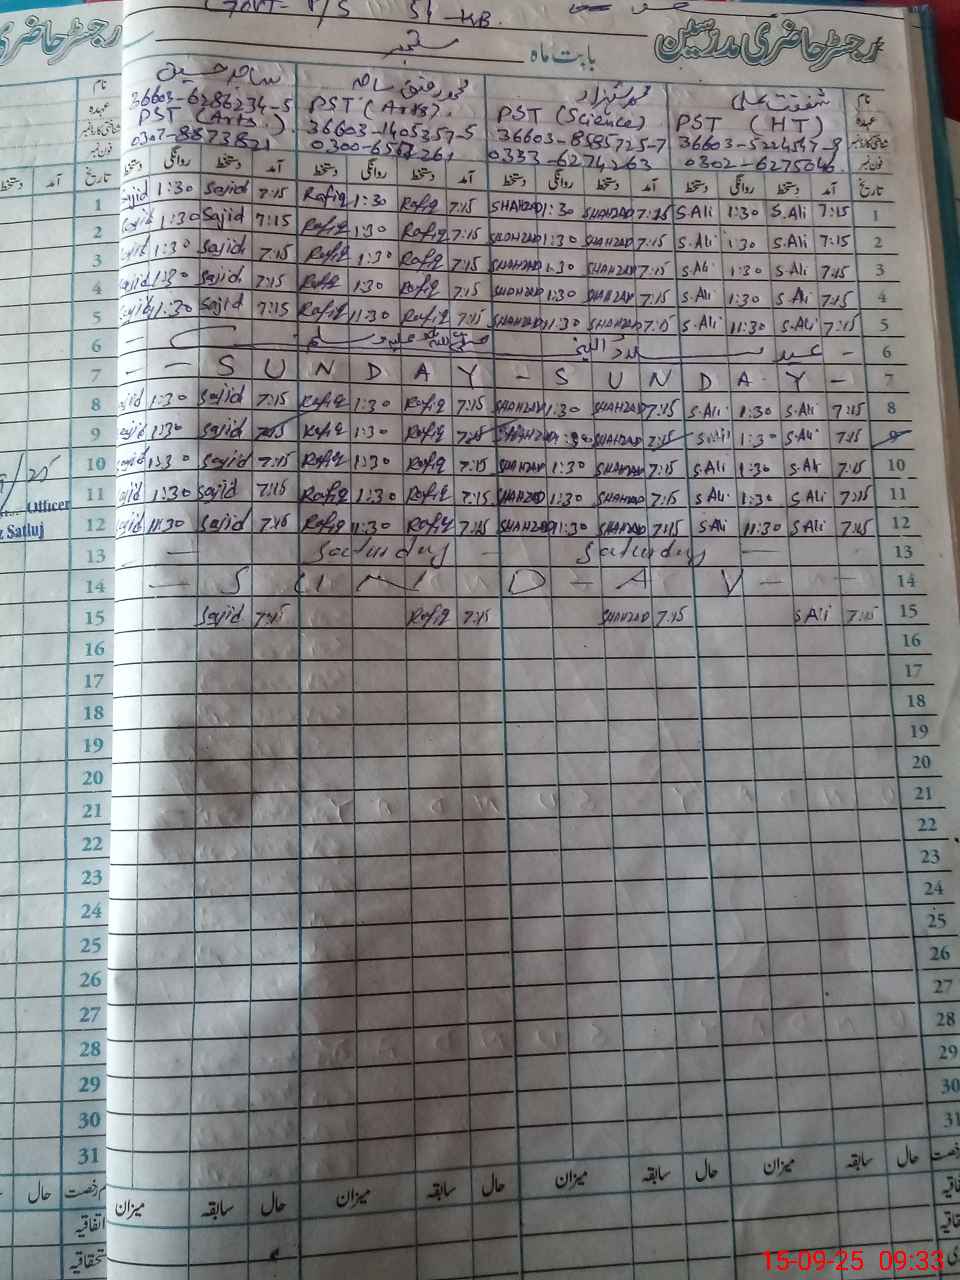 GOVT- P/S 51-KB.
رجسٹر حاضری مدرسین
بابت ماہ ستمبر
نام شفقت علی محمد شہزاد ساجد حسین نام
عہدہ PST (HT) PST (Science) PST (Arts). PST (Arts). عہدہ
36603-8585725-7 36603-1405357-5 36603-6286234-5
فون نمبر 0302-6275046 0333-6274263 فون نمبر
تاریخ آمد دستخط روانگی دستخط آمد دستخط روانگی دستخط آمد دستخط روانگی دستخط آمد دستخط روانگی دستخط تاریخ
1 Sajid 1:30 Sajid 7:15 Rafiq 1:30 Rafiq 7:15 SHAHZAD 1:30 SHAHZAD 7:15 S.Ali 1:30 S.Ali 7:15 1
2 Sajid 1:30 Sajid 7:15 Rafiq 1:30 Rafiq 7:15 SHAHZAD 1:30 SHAHZAD 7:15 S.Ali 1:30 S.Ali 7:15 2
3 Sajid 1:30 Sajid 7:15 Rafiq 1:30 Rafiq 7:15 SHAHZAD 1:30 SHAHZAD 7:15 S.Ali 1:30 S.Ali 7:15 3
4 Sajid 1:30 Sajid 7:15 Rafiq 1:30 Rafiq 7:15 SHAHZAD 1:30 SHAHZAD 7:15 S.Ali 1:30 S.Ali 7:15 4
5 Sajid 11:30 Sajid 7:15 Rafiq 11:30 Rafiq 7:15 SHAHZAD 11:30 SHAHZAD 7:15 S.Ali 11:30 S.Ali 7:15 5
6 - عید میلاد النبی صلی اللہ علیہ وسلم - 6
7 - - S U N D A Y - S U N D A Y - 7
8 Sajid 1:30 Sajid 7:15 Rafiq 1:30 Rafiq 7:15 SHAHZAD 1:30 SHAHZAD 7:15 S.Ali 1:30 S.Ali 7:15 8
9 Sajid 1:30 Sajid 7:15 Rafiq 1:30 Rafiq 7:15 SHAHZAD 1:30 SHAHZAD 7:15 S.Ali 1:30 S.Ali 7:15 9
10 Sajid 1:30 Sajid 7:15 Rafiq 1:30 Rafiq 7:15 SHAHZAD 1:30 SHAHZAD 7:15 S.Ali 1:30 S.Ali 7:15 10
11 Sajid 1:30 Sajid 7:15 Rafiq 1:30 Rafiq 7:15 SHAHZAD 1:30 SHAHZAD 7:15 S.Ali 1:30 S.Ali 7:15 11
12 Sajid 11:30 Sajid 7:15 Rafiq 11:30 Rafiq 7:15 SHAHZAD 11:30 SHAHZAD 7:15 S.Ali 11:30 S.Ali 7:15 12
13 - Saturday - Saturday - 13
14 - S U N D - A Y - - 14
15 Sajid 7:15 Rafiq 7:15 SHAHZAD 7:15 S.Ali 7:15 15
16 16
17 17
18 18
19 19
20 20
21 21
22 22
23 23
24 24
25 25
26 26
27 27
28 28
29 29
30 30
31 31
حال سابقہ میزان حال سابقہ میزان حال سابقہ میزان حال سابقہ میزان
اتفاقیہ
استحقاقیہ
Officer
Satluj
15-09-25 09:33